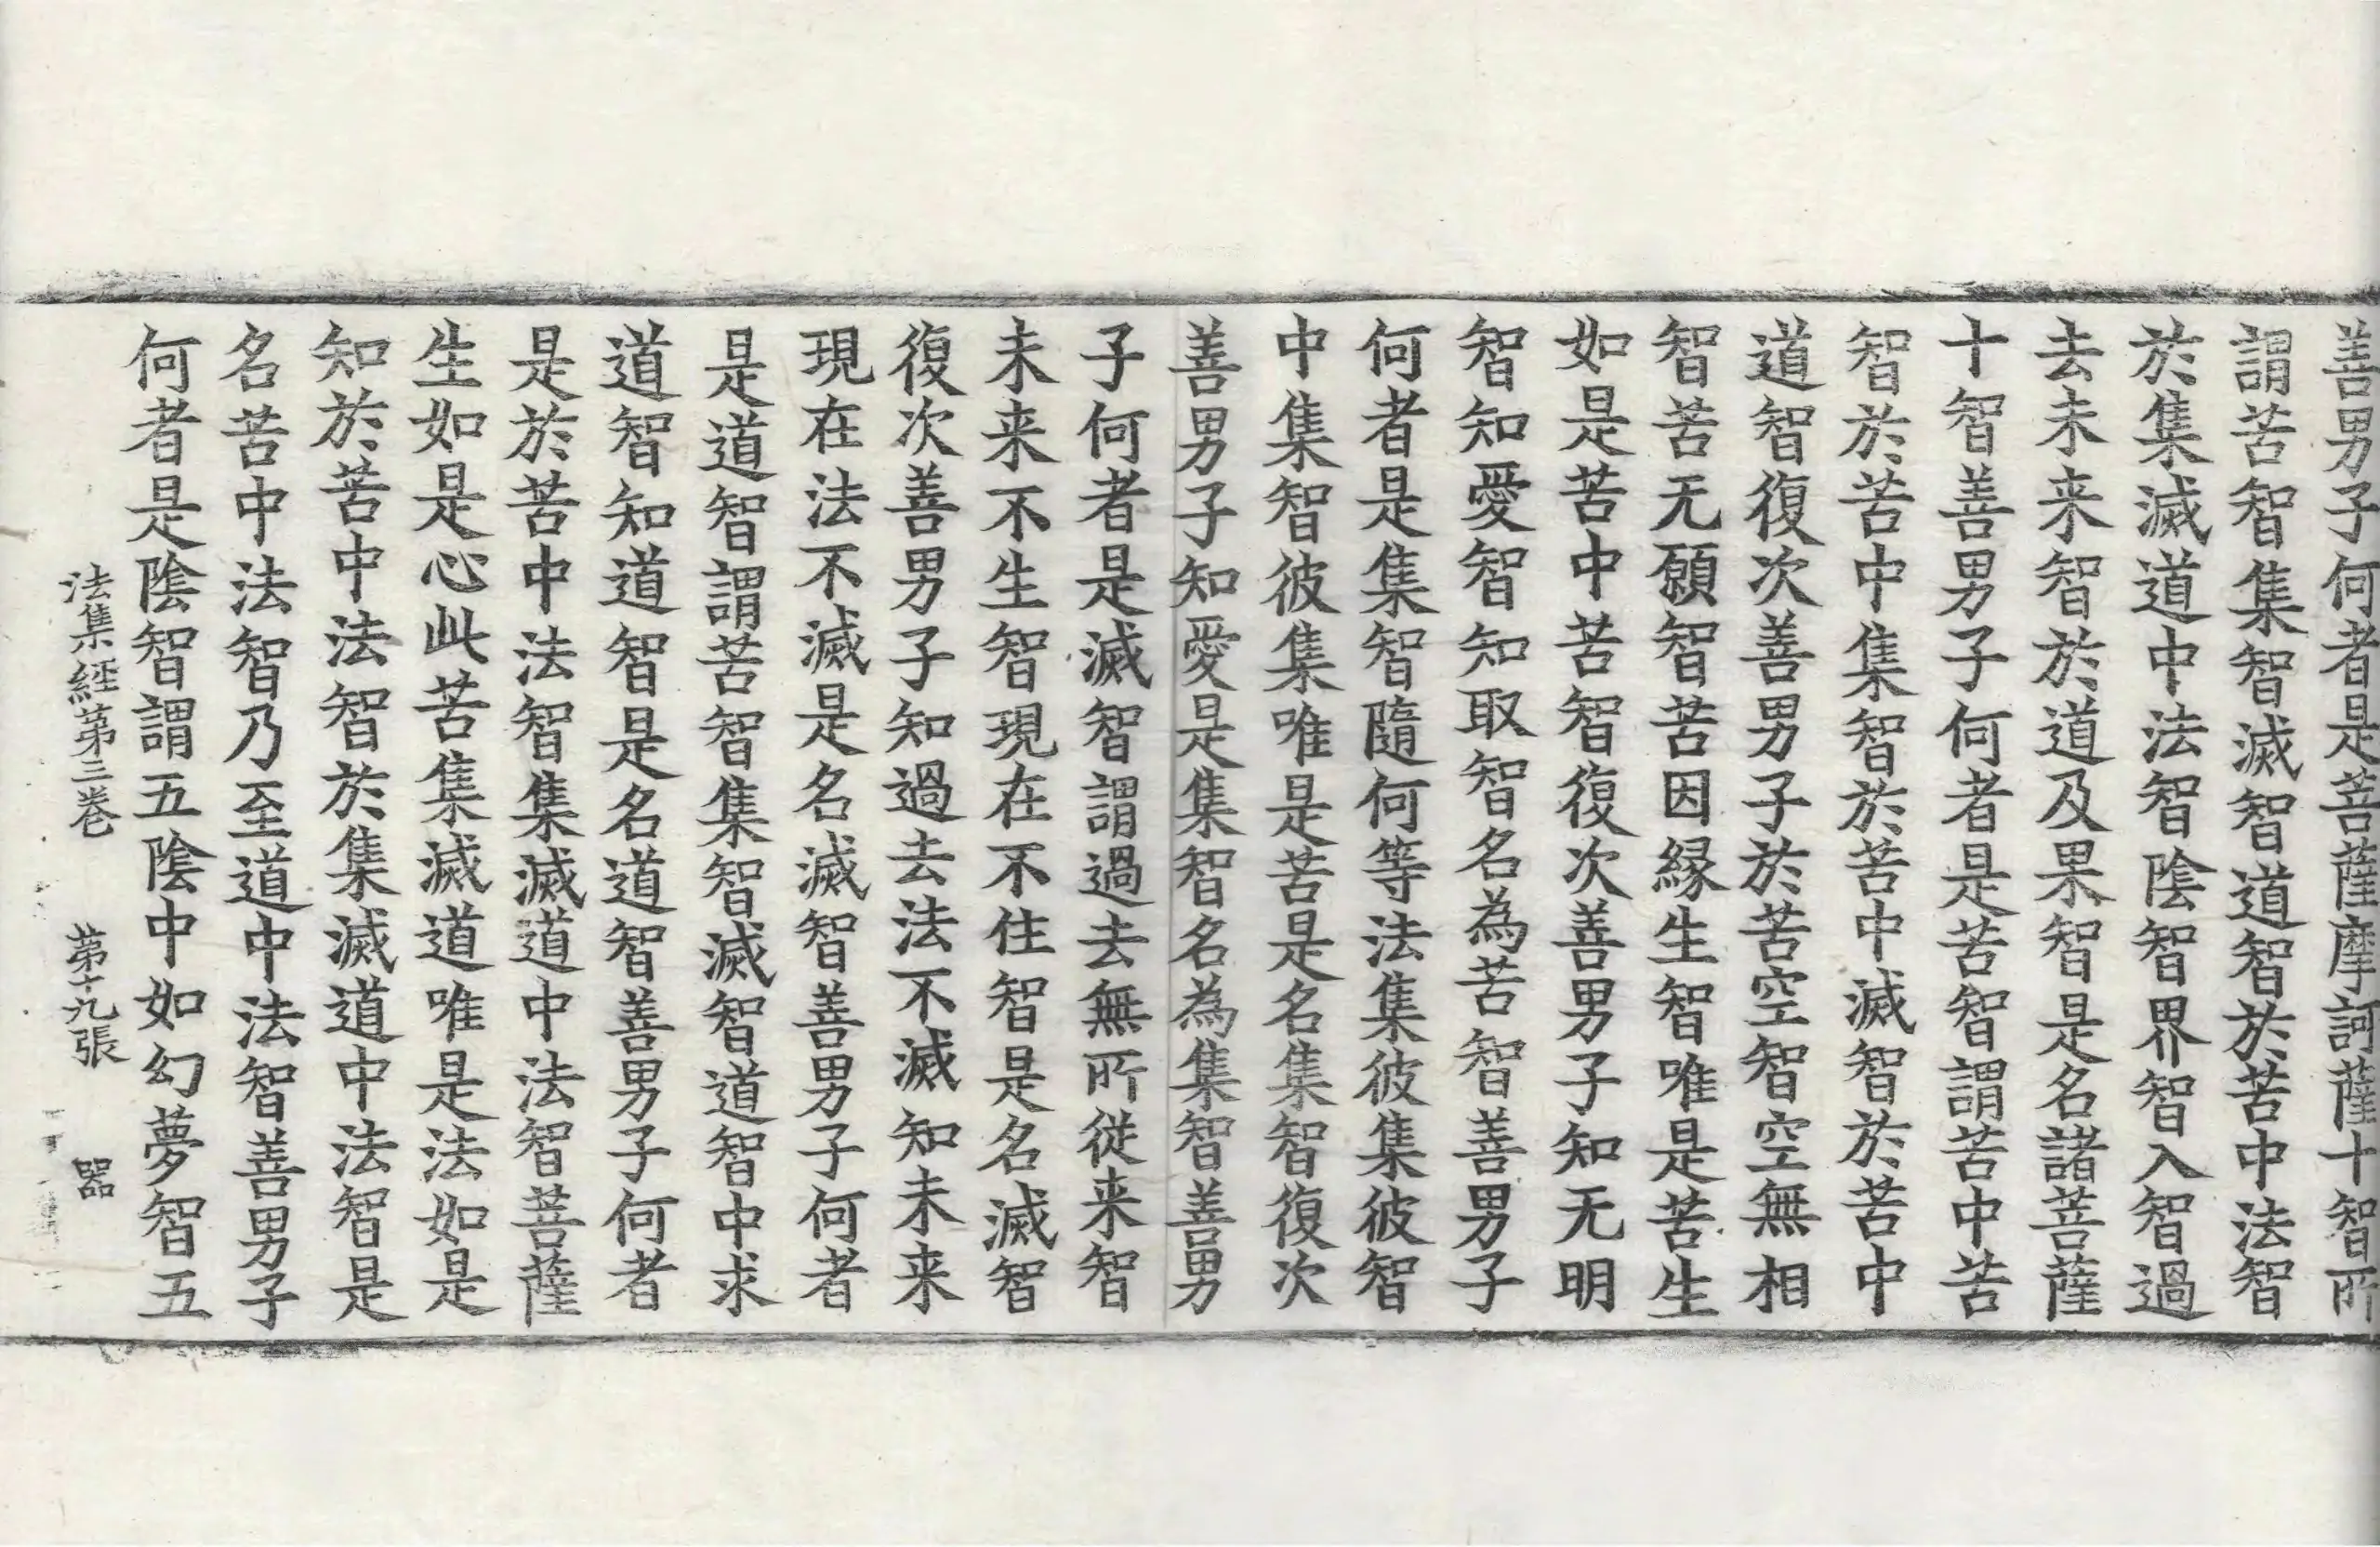 善男子何者是菩薩摩訶薩十智所
謂苦智集智滅智道智於苦中法智
於集滅道中法智陰智界智入智過
去未来智於道及果智是名諸菩薩
十智善男子何者是苦智謂苦中苦
智於苦中集智於苦中滅智於苦中
道智復次善男子於苦空智空無相
智苦无願智苦因縁生智唯是苦生
如是苦中苦智復次善男子知无明
智知愛智知取智名為苦智善男子
何者是集智隨何等法集彼集彼智
中集智彼集唯是苦是名集智復次
善男子知愛是集智名為集智善男
子何者是滅智謂過去無所従来智
未来不生智現在不住智是名滅智
復次善男子知過去法不滅知未来
現在法不滅是名滅智善男子何者
是道智謂苦智集智滅智道智中求
道智知道智是名道智善男子何者
是於苦中法智集滅道中法智菩薩
生如是心此苦集滅道唯是法如是
知於苦中法智於集滅道中法智是
名苦中法智乃至道中法智善男子
何者是陰智謂五陰中如幻夢智五
法集経第三巻 第十九張 器